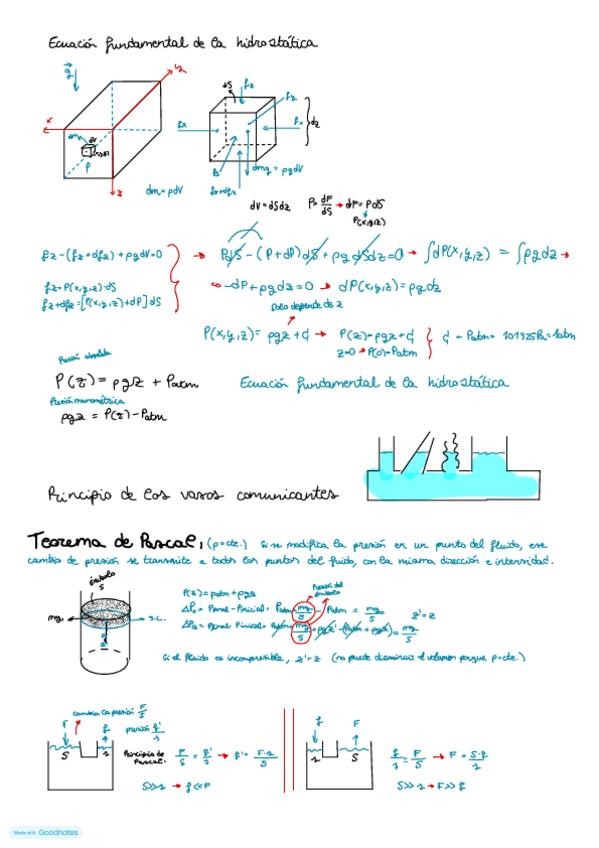 Ecuación fundamental de la hidrostática
dm = ρdV
dmg = ρgdV
dV = dSdz
P = dF/dS → dF = PdS
P(x,y,z)
fz - (fz + dfz) + ρgdV = 0 → PdS - (P + dP)dS + ρgdSdz = 0 → ∫dP(x,y,z) = ∫ρgdz →
fz = P(x,y,z)·dS
fz + dfz = [P(x,y,z) + dP]dS
⇔ -dP + ρgdz = 0 → dP(x,y,z) = ρgdz
solo depende de z
P(x,y,z) = ρgz + C → P(z) = ρgz + C
z=0 → P(0) = Patm
C = Patm = 101325Pa = 1atm
Presión absoluta
P(z) = ρgz + Patm
Ecuación fundamental de la hidrostática
Presión manométrica
ρgz = P(z) - Patm
Principio de los vasos comunicantes
Teorema de Pascal, (ρ=cte.) Si se modifica la presión en un punto del fluido, ese
cambio de presión se transmite a todos los puntos del fluido, con la misma dirección e intensidad.
émbolo
S
mg
S.L.
P(z) = Patm + ρgz
Presión del émbolo
z' = z
Si el fluido es incompresible, z' = z (no puede disminuir el volumen porque ρ=cte.)
cambia la presión F/S
presión f'/s
F
S
s
Principio de Pascal:
F/S = f'/s → f' = F·s/S
S>>s → f<<F
f
F
s
S
f/s = F/S → F = S·f/s
S>>s → F>>f
Made with Goodnotes